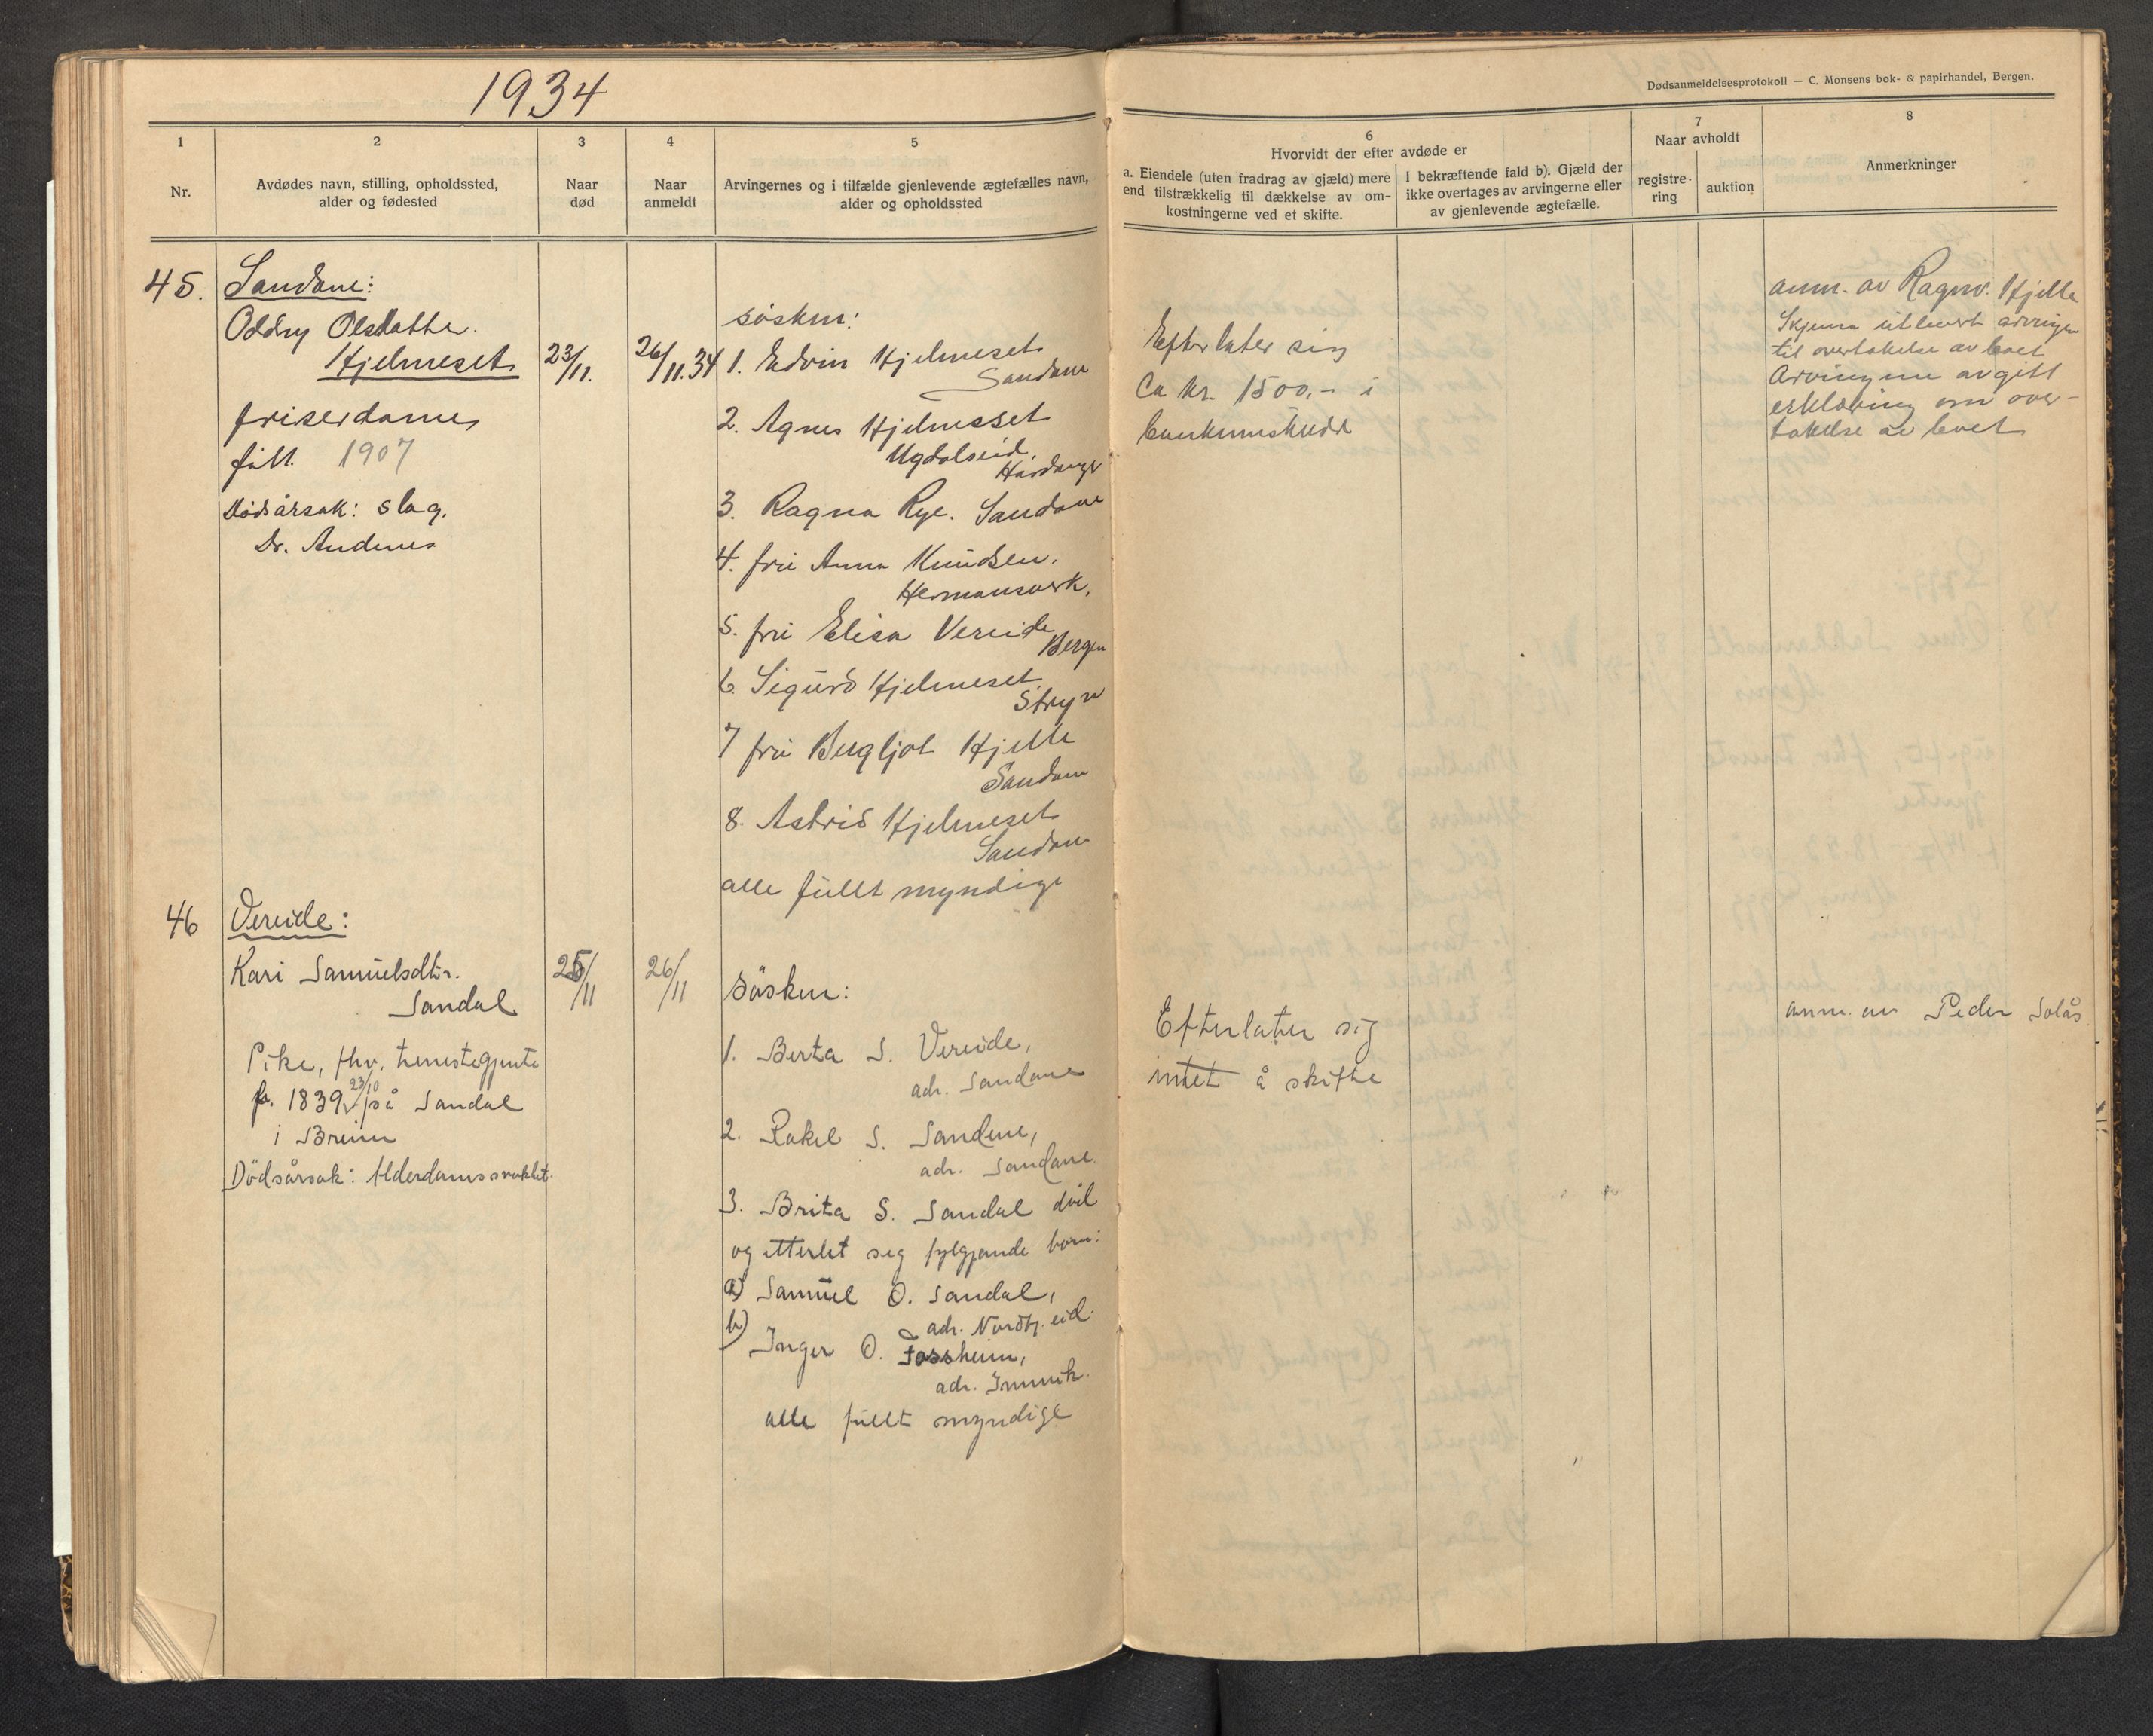 1934
Dødsanmeldelsesprotokoll — C. Monsens bok- & papirhandel, Bergen.
1
Nr.
2
Avdødes navn, stilling, opholdssted,
alder og fødested
3
Naar
død
4
Naar
anmeldt
5
Arvingernes og i tilfælde gjenlevende ægtefælles navn,
alder og opholdssted
6
Hvorvidt der efter avdøde er
a. Eiendele (uten fradrag av gjæld) mere
end tilstrækkelig til dækkelse av om-
kostningerne ved et skifte.
I bekræftende fald b). Gjæld der
ikke overtages av arvingerne eller
av gjenlevende ægtefælle.
7
Naar avholdt
registre-
ring
auktion
8
Anmerkninger
45.
Sandane:
Oddny Olsdatter
Hjelmeset
friserdame
født 1907
Dødsårsak: slag.
Dr. Andenes
23/11.
26/11.34
søsken:
1. Edvin Hjelmeset
Sandane
2. Agnes Hjelmeset
Ugdalseid,
Hardanger
3. Ragna Rye. Sandane
4. fru Anna Knudsen.
Hermansverk.
5. fru Elisa Vereide
Bergen
6. Sigurd Hjelmeset
Stryn
7 fru Bergljot Hjelle
Sandane
8. Astrid Hjelmeset
Sandane
alle fullt myndige
Efterlater sig
Ca kr. 1500,- i
bankinnskudd
anm. av Ragnv. Hjelle
Skjema utlevert arvingen
til overtakelse av boet
Arvingene avgitt
erklæring om over-
takelse av boet
46
Vereide:
Kari Samuelsdtr.
Sandal
Pike, fhv. tenestegjente
f. 1839 23/10 på Sandal
i Breim
Dödsårsak: Alderdomssvakhet.
25/11
26/11
Søsken:
1. Berta S. Vereide,
adr. Sandane
2. Rakel S. Sandene,
adr. Sandane.
3. Brita S. Sandal död
og etterlet seg fylgjande born:
a) Samuel O. Sandal,
adr. Nordfj.eid.
b) Inger O. Fossheim,
adr. Innvik.
alle fullt myndige
Efterlater sig
intet å skifte
anm. av Peder Solås